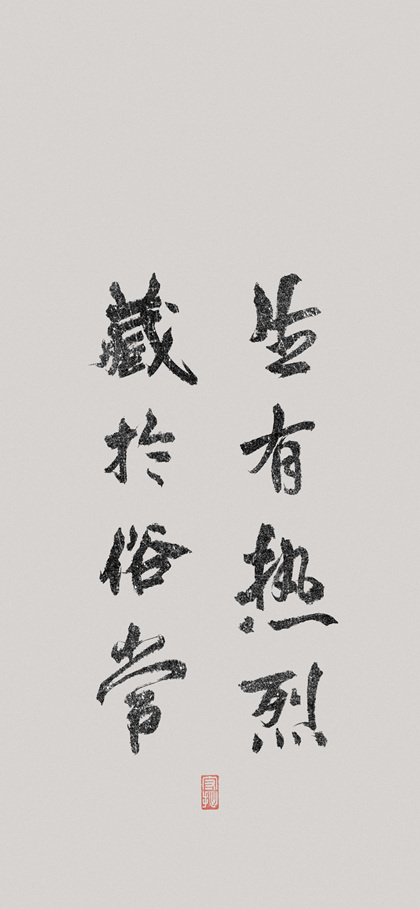 生有热烈
藏於俗常